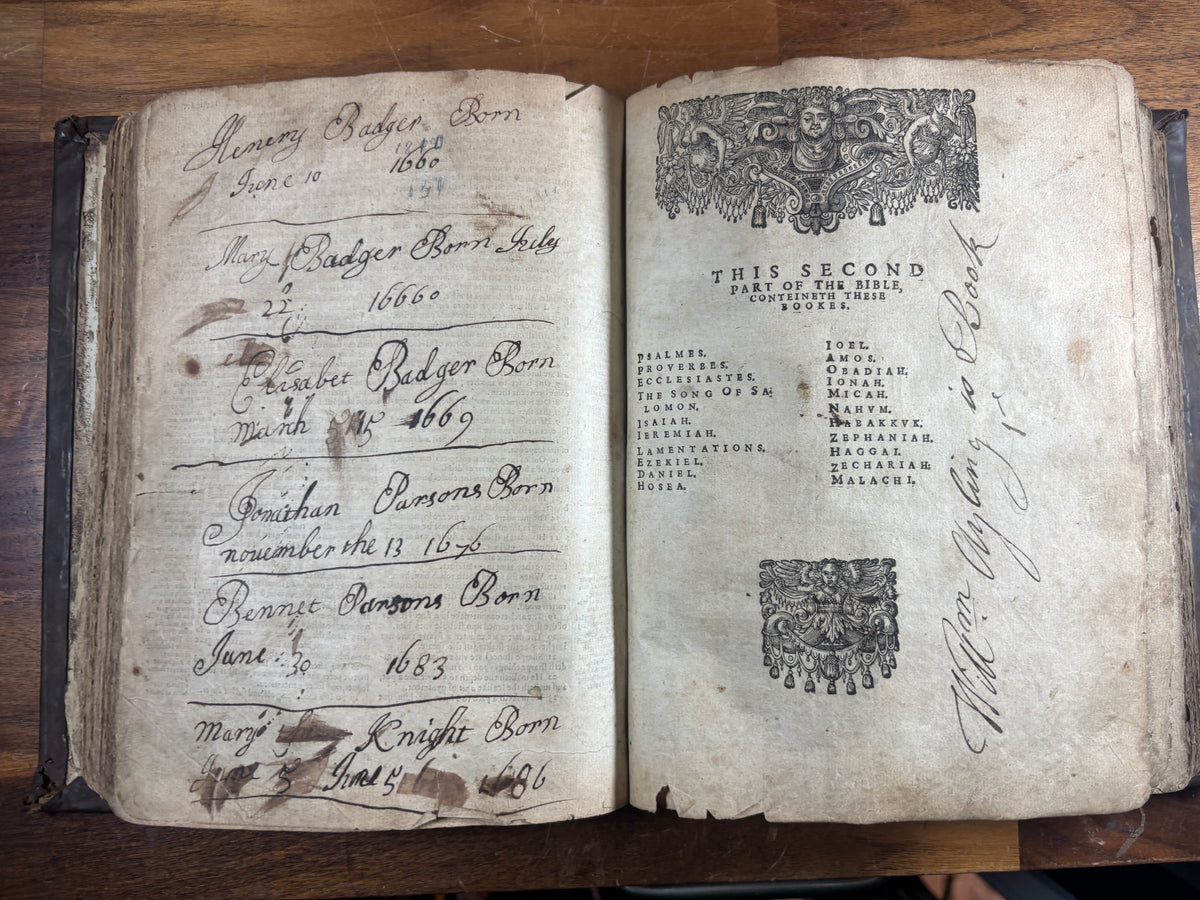 Henery Badger Born
June 10 1660
Mary Badger Born July
22 16660
Elisabet Badger Born
March 15 1669
Jonathan Parsons Born
november the 13 1676
Bennet Parsons Born
June 30 1683
Mary Knight Born
June 5 June 5 1686
THIS SECOND
PART OF THE BIBLE,
CONTEINETH THESE
BOOKES.
PSALMES.
PROVERBES.
ECCLESIASTES.
THE SONG OF SA-
LOMON.
ISAIAH.
IEREMIAH.
LAMENTATIONS.
EZEKIEL.
DANIEL.
HOSEA.
IOEL.
AMOS.
OBADIAH.
IONAH.
MICAH.
NAHVM.
HABAKKVK.
ZEPHANIAH.
HAGGAI.
ZECHARIAH.
MALACHI.
William Ayling is Book